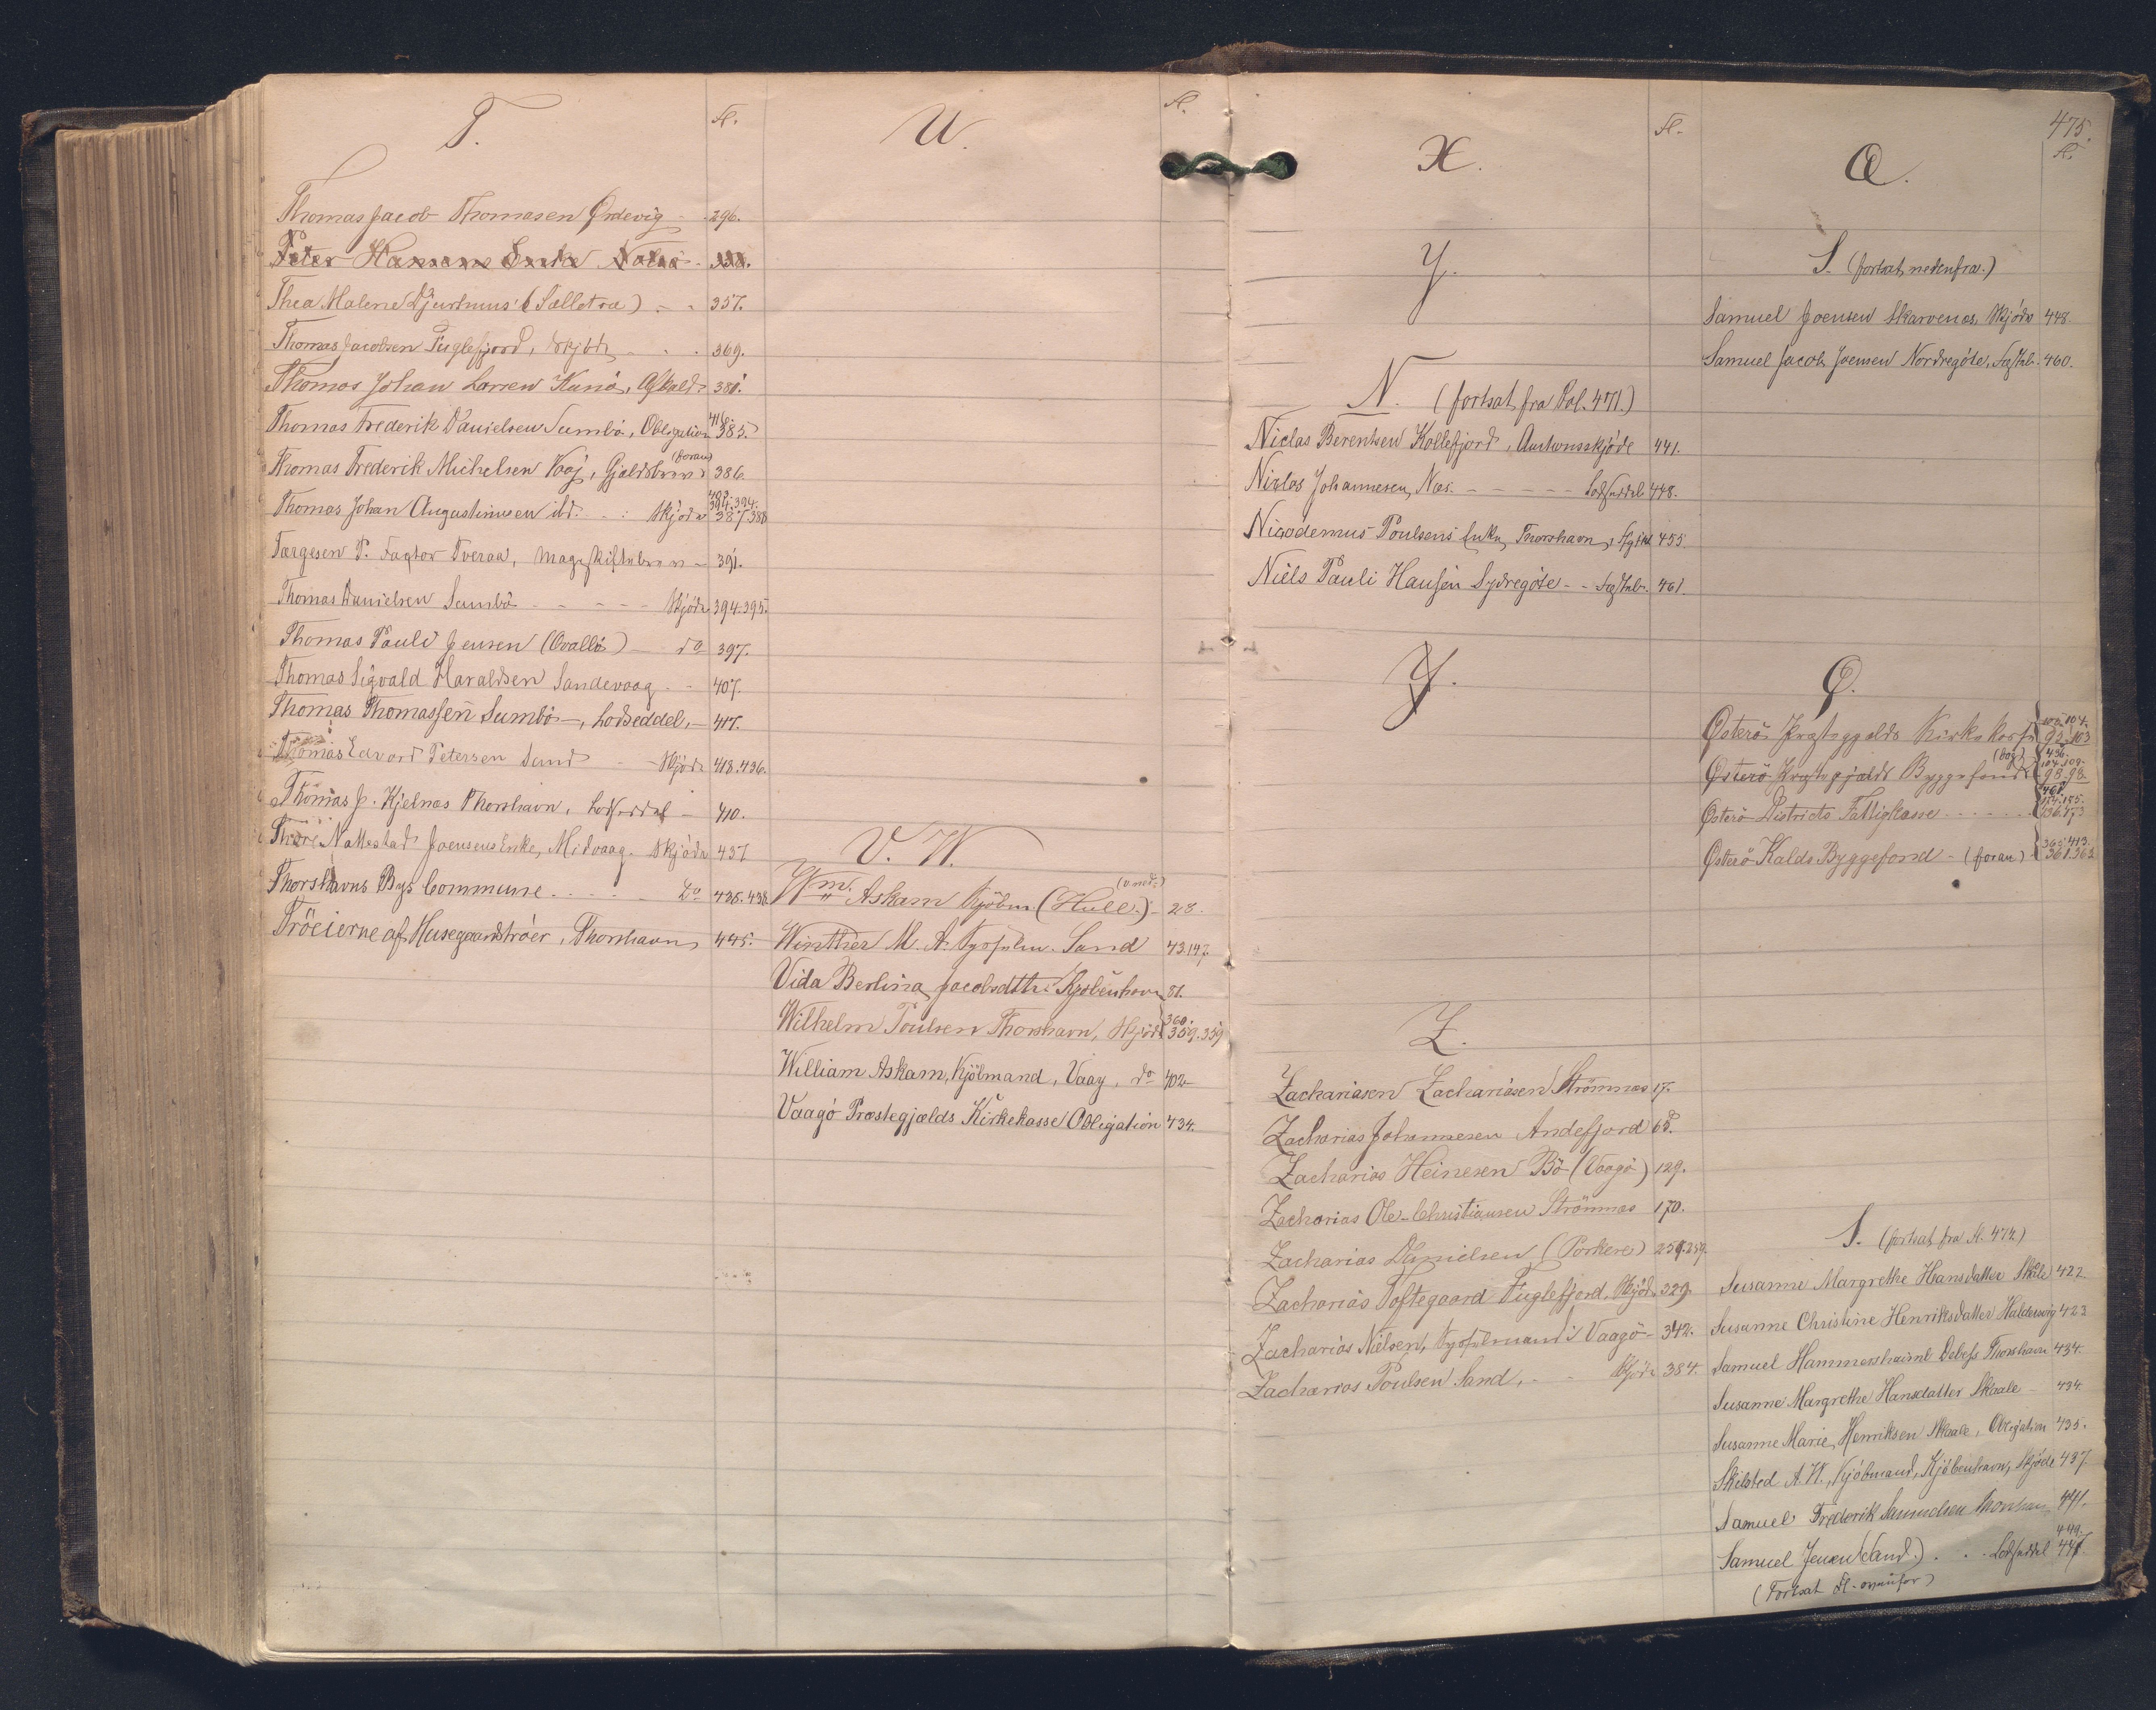 T.
Fl.
Thomas Jacob Thomasen Ordevig - . 296.
Peter Hansens Enke Nolsö -
Thea Malene Djurhuus (Selletræ) - - 357.
Thomas Jacobsen Fuglefjord, Skjöde - . . 369.
Thomas Johan Larsen Kunö, Afkald. 380.
416.
Thomas Frederik Danielsen Sumbö, Obligation 385.
(foran)
Thomas Frederik Michelsen Vaag, Gjældsbrev 386.
403.
394.394.
Thomas Johan Augustinusen ibd. - : Skjöde 387 388
Tærgesen P. Factor Tveraa, Mageskiftebrev - 391.
Thomas Danielsen Sumbö - - - - - Skjöde 394.395.
Thomas Pauli Jensen (Qvalbö) - do 397.
Thomas Sigvald Haraldsen Sandevaag - - 407.
Thomas Thomassen Sumbö -, Lodseddel, - 417.
Thomas Edvard Petersen Sand - Skjöde 418.436.
Thomas J. Kjelnæs Thorshavn, Lodseddel - 410.
Nattestad Joensens Enke, Midvaag. Skjöde 437
Thorshavns Byes Commune . . . . - Do 438.438.
Tröeierne af Husegaardströer, Thorshavn, 445.
U.
Fl.
V. W.
Wm. Askam Kjöbm. (Hull.) - 28.
Winther M. A. Sysselm. Sand 43.147.
Vida Berlina Jacobsdttr. Kjöbenhavn 81.
360.
Wilhelm Poulsen Thorshavn, Skjöde 359.359
William Askam, Kjöbmand, Vaag, do 402
Vaagö Præstegjælds Kirkekasse Obligation 434.
X.
Fl.
Y.
N. (fortsat fra Fol. 471.)
Niclas Berentsen Kollefjord, Auctionsskjöde 441.
Niclas Johannesen, Næs. - - - - - Lodseddel 448.
Nicodemus Poulsens Enke, Thorshavn, 455.
Niels Pauli Hansen Sydregöte - - Fæsteb. 461.
Y.
Z.
Zachariasen Zachariasen Strömnæs 17.
Zacharias Johannesen Andefjord 68.
Zacharias Heinesen Bö (Vaagö) 129.
Zacharias Ole Christiansen Strömnæs 170.
Zacharias Danielsen (Porkere) 259.259.
Zacharias Toftegaard Fuglefjord, Skjöde 329.
Zacharias Nielsen, Sysselmand i Vaagö - 342.
Zacharias Poulsen Sand, - - Skjöde 384.
475.
Fl.
Æ.
S. (fortsat nedenfra.)
Samuel Joensen Skarvenæs, Skjöde 448.
Samuel Jacob Joensen Nordregöte, Fæsteb. 460.
Ø.
105.104.
Østerö Præstegjælds Kirkekasse 92.103
436.
104.109.
Østerö Præstegjælds Byggefond 98.98.
461.
154.155.
Østerö Districts Fattigkasse . . . . . . . 136.473
365.413.
Østerö Kalds Byggefond - (foran) 361.362
S. (fortsat fra Fl. 474.)
Susanne Margrethe Hansdatter Skaale 422.
Susanne Christine Henriksdatter Haldersvig 423
Samuel Hammershaimb Debess Thorshavn 434.
Susanne Margrethe Hansdatter Skaale - 434.
Susanne Marie Henriksen Skaale, Obligation 435.
Skibsted A. W., Kjöbmand, Kjöbenhavn, Skjöde 437.
Samuel Frederik Samuelsen Thorshavn 441.
449.
Samuel Jensen (Sand.) . . . Lodseddel 447.
(Fortsat Fl. ovenfor)